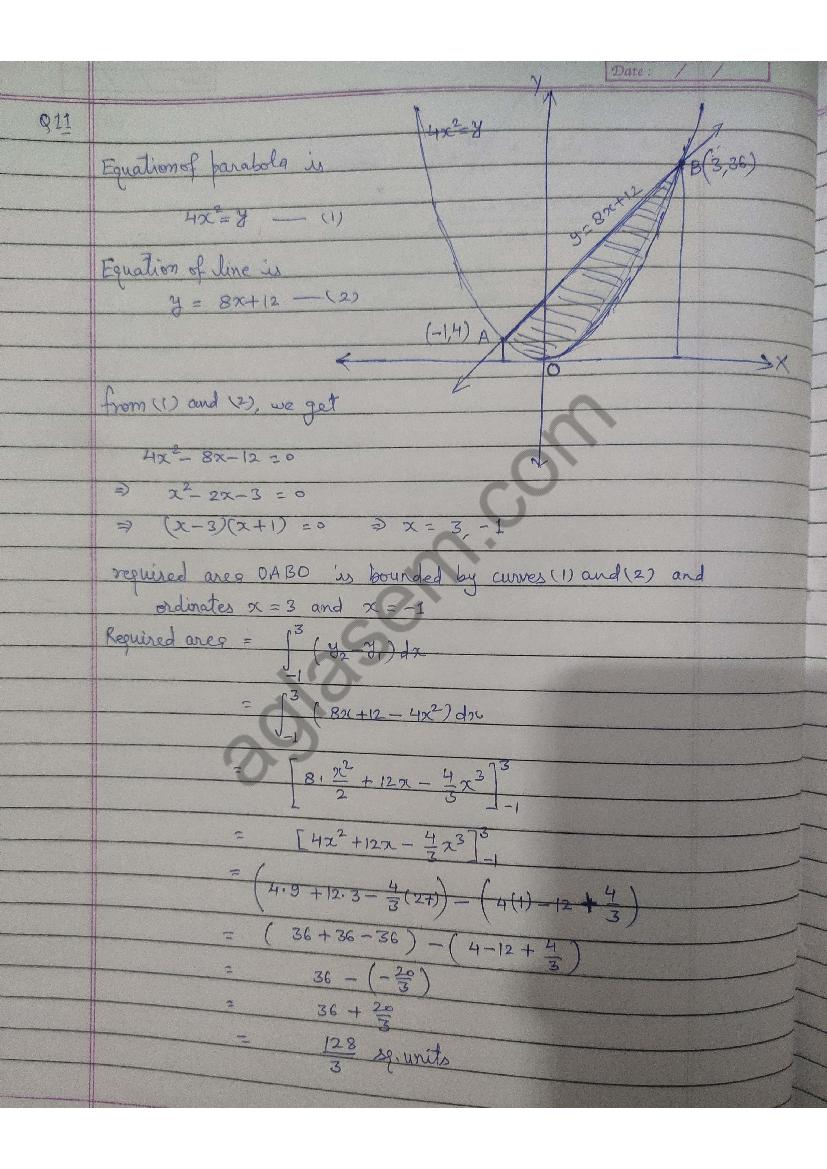 Date: / /
Q11
Y
4x²=y
B(3,36)
y=8x+12
(-1,4) A
O
X
Equation of parabola is
4x²=y — (1)
Equation of line is
y = 8x+12 — (2)
from (1) and (2), we get
4x²- 8x-12 =0
⇒ x²- 2x-3 =0
⇒ (x-3)(x+1) =0 ⇒ x = 3, -1
required area OABO is bounded by curves (1) and (2) and
ordinates x=3 and x=-1
Required area = ∫₋₁³ (y₂-y₁)dx
= ∫₋₁³ (8x+12-4x²)dx
= [8·x²/2 +12x - 4/3 x³]₋₁³
= [4x²+12x - 4/3 x³]₋₁³
= (4·9 +12·3 - 4/3(27)) - (4(1)-12 + 4/3)
= (36+36-36) - (4-12+ 4/3)
= 36 - (-20/3)
= 36 + 20/3
= 128/3 sq.units
aglasem.com